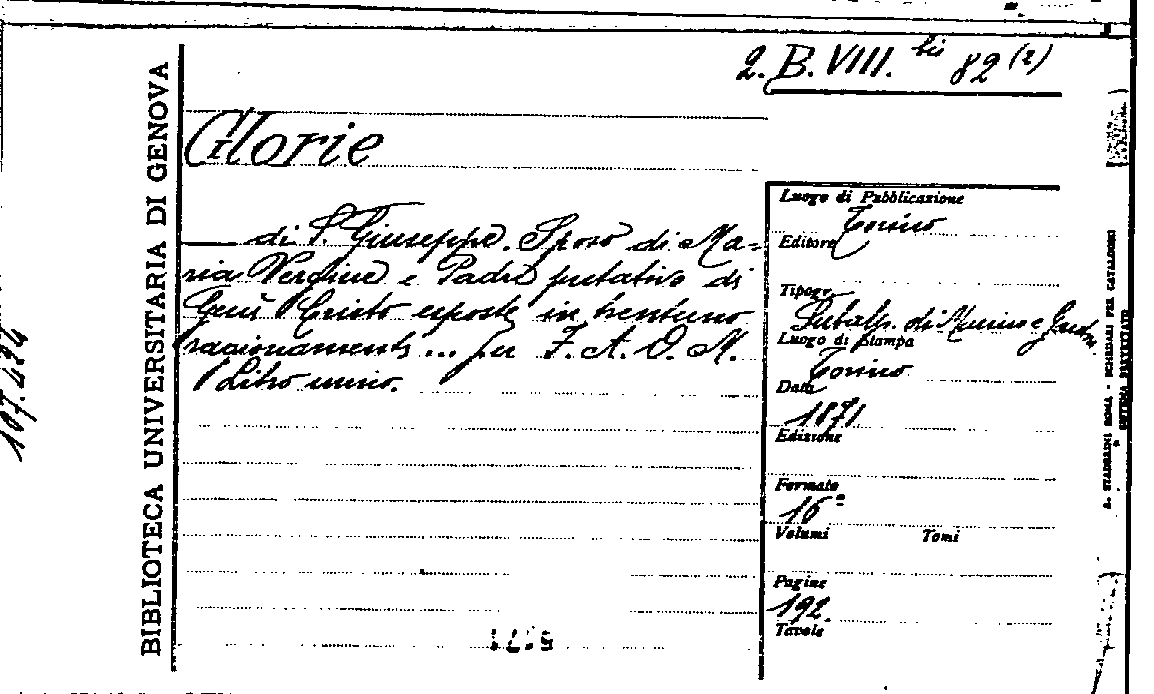 2. B. VIII. bis 82 (2)
Glorie
di S. Giuseppe. Sposo di Ma=
ria Vergine e Padre putativo di
Gesù Cristo esposte in trentuno
ragionamenti ... per F. A. D. M.
Libro unico.
BIBLIOTECA UNIVERSITARIA DI GENOVA
107.434
Luogo di Pubblicazione
Torino
Editore
Tipogr.
Subalp. di Marino e
Luogo di Stampa
Torino
Data
1871
Edizione
Formato
16°
Volumi Tomi
Pagine
192.
Tavole
A. STADERINI ROMA - SCHEDARI PER CATALOGHI
SISTEMA BREVETTATO